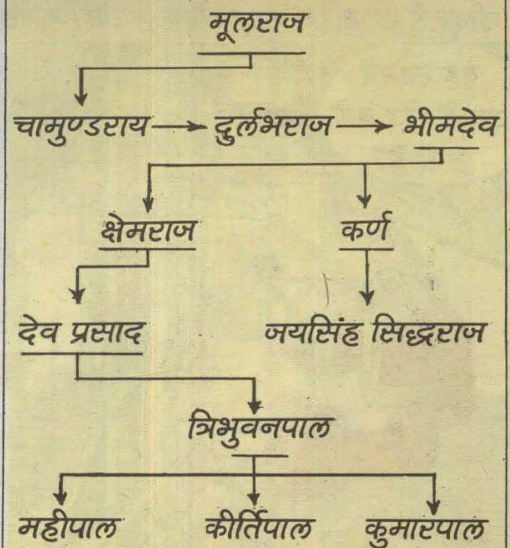 मूलराज
चामुण्डराय → दुर्लभराज → भीमदेव
क्षेमराज कर्ण
देव प्रसाद जयसिंह सिद्धराज
त्रिभुवनपाल
महीपाल कीर्तिपाल कुमारपाल